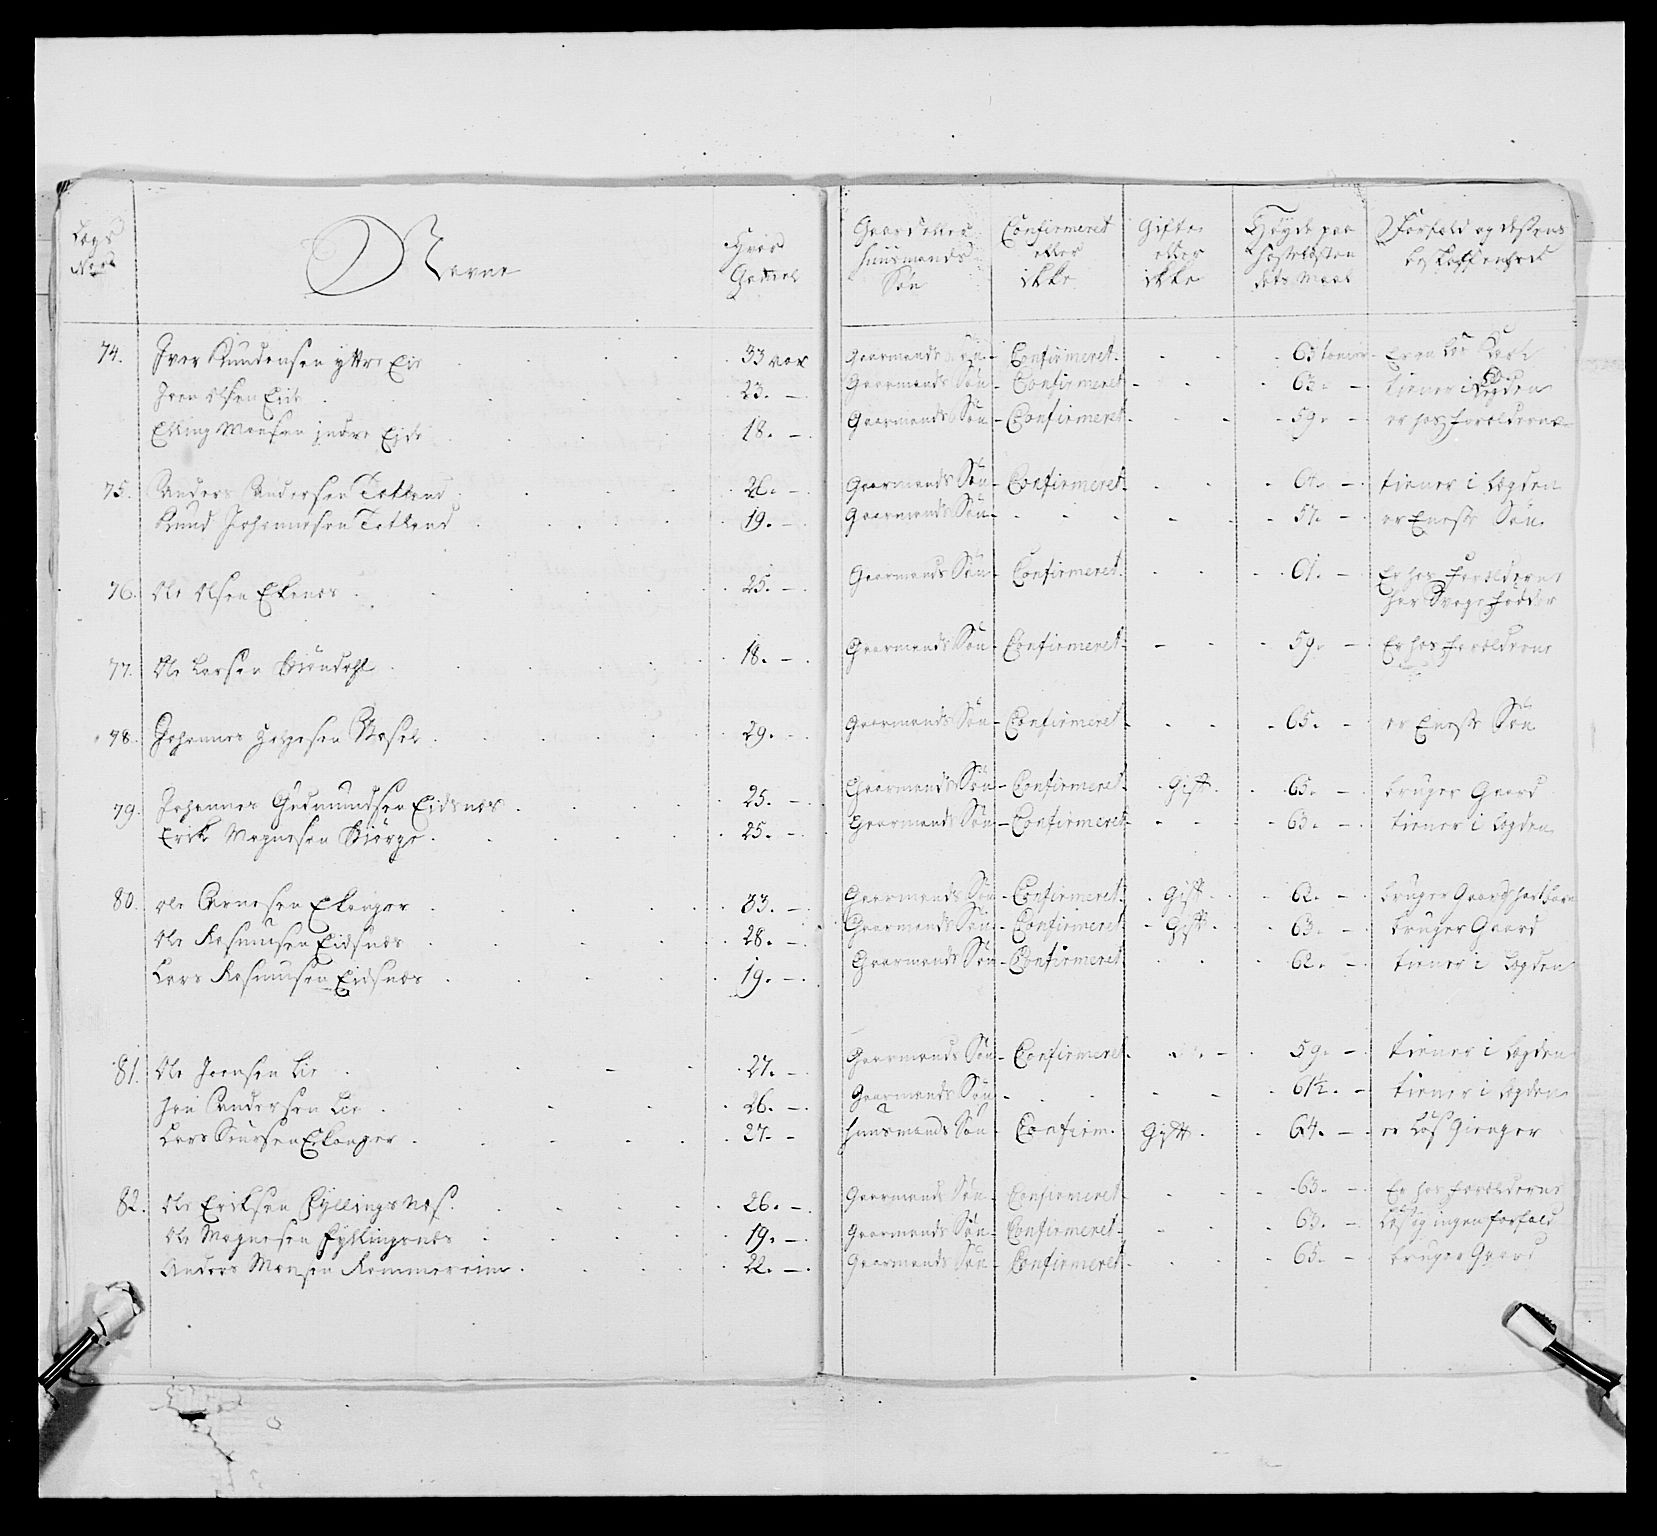 Lægs No. Navne Hvor Gammel Gaard eller Huusmands Søn Confirmeret eller ikke Gift eller ikke Høyde paa Maal Forfald og dessens beskaffenhed
74. Iver Knudsen yttre Eide 33 aar Gaarmands Søn Confirmeret 63 tomer er en løs Karl
Joen Olsen Eide 23. Gaarmands Søn Confirmeret 63. tiener i Lægden
Elling Monsen indre Eide 18. Gaarmands Søn Confirmeret 59. er hos foreldrene
75. Anders Andersen Totland 26. Gaarmands Søn Confirmeret tiener i Lægden
Knud Johannesen Totland 19. Gaarmands Søn 57. er Eneste Søn
76. Ole Olsen Ekenes 25. Gaarmands Søn Confirmeret 61. Er hos foreldrene
har Svage fødder
77. Ole Larsen 18. Gaarmands Søn Confirmeret 59. Er hos foreldrene
78. Johannes Helgesen 29. Gaarmands Søn Confirmeret 65. er Eneste Søn
79. Johannes Gudmundsen Eidsnæs 25. Gaarmands Søn Confirmeret Gift 65. bruger Gaard
Erik Magnesen Biørge 25. Gaarmands Søn Confirmeret 63. tiener i Lægden
80. Ole Arnesen Ekanger 33. Gaarmands Søn Confirmeret Gift 62. bruger Gaard
Ole Rasmusen Eidsnæs 28. Gaarmands Søn Confirmeret Gift 63. bruger Gaard
Lars Rasmusen Eidsnæs 19. Gaarmands Søn Confirmeret 62. tiener i Lægden
81. Ole Joensen Lie 27. Gaarmands Søn Confirmeret 59. tiener i Lægden
Jon Andersen Lie 26. Gaarmands Søn 61½. tiener i Lægden
Lars Ekanger 27. Huusmands Søn Confirm. Gift 64. er Løs Gienger
82. Ole Eriksen Fyllingsnæs 26. Gaarmands Søn Confirmeret 63. Er hos foreldrene
Ole Magnesen Fyllingsnæs 19. Gaarmands Søn Confirmeret 63. ingen forfald
Anders Monsen Rommereim 22. Gaarmands Søn Confirmeret 65. bruger Gaard